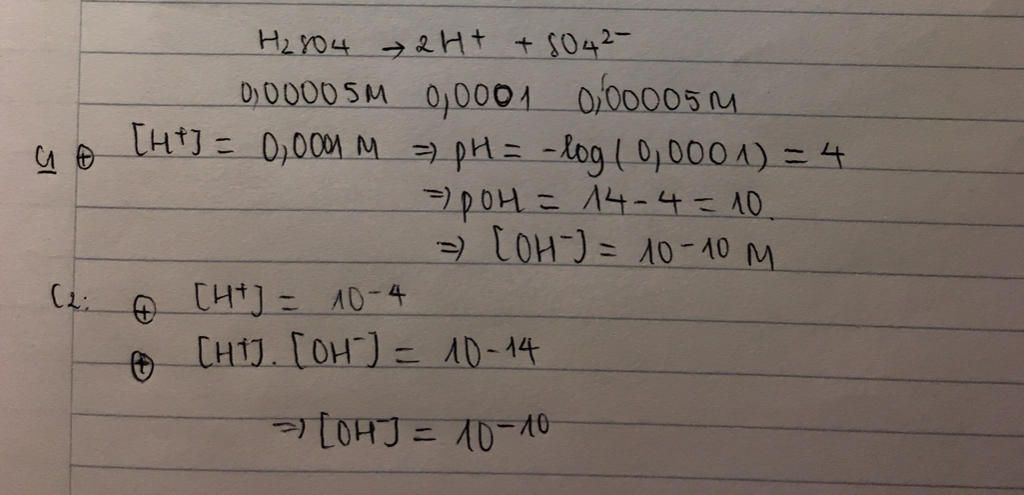 H2SO4 → 2H+ + SO4 2-
0,00005M 0,0001 0,00005M
C1 ⊕ [H+] = 0,0001 M => pH = -log(0,0001) = 4
=> pOH = 14-4 = 10.
=> [OH-] = 10-10 M
C2: ⊕ [H+] = 10-4
⊕ [H+]. [OH-] = 10-14
=> [OH-] = 10-10